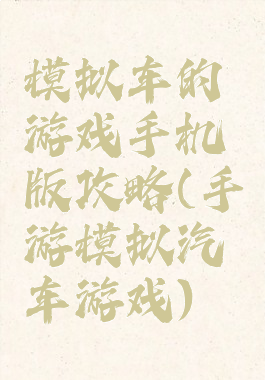 模拟车的
游戏手机
版攻略(手
游模拟汽
车游戏)